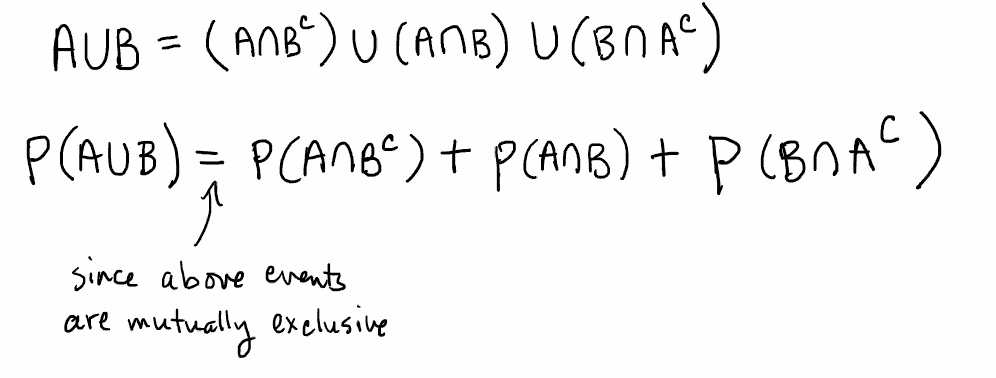 A∪B = (A∩Bᶜ) ∪ (A∩B) ∪ (B∩Aᶜ)
P(A∪B) = P(A∩Bᶜ) + P(A∩B) + P(B∩Aᶜ)
since above events
are mutually exclusive